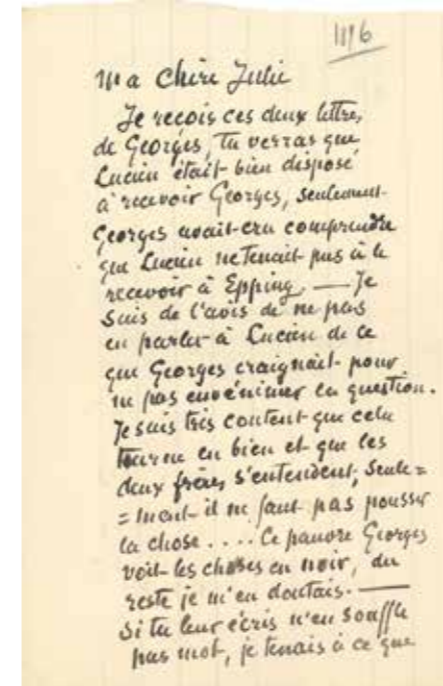 1116
Ma Chère Julie
Je reçois ces deux lettre,
de Georges, Tu verras que
Lucien était bien disposé
à recevoir Georges, seulement
Georges avait cru comprendre
que Lucien ne tenait pas à le
recevoir à Epping. — Je
suis de l'avis de ne pas
en parler à Lucien de ce
que Georges craignait pour
ne pas envénimer la question.
Je suis très content que cela
tourne en bien et que les
deux frères s'entendent, seule=
=ment il ne faut pas pousser
la chose.... Ce pauvre Georges
voit les choses en noir, du
reste je m'en doutais. —
Si tu leur écris n'en souffle
pas mot, je tenais à ce que